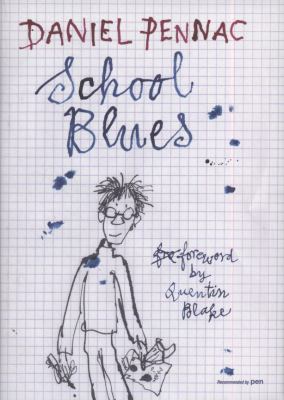 DANIEL PENNAC
School
Blues
foreword
by
Quentin
Blake
Recommended by pen